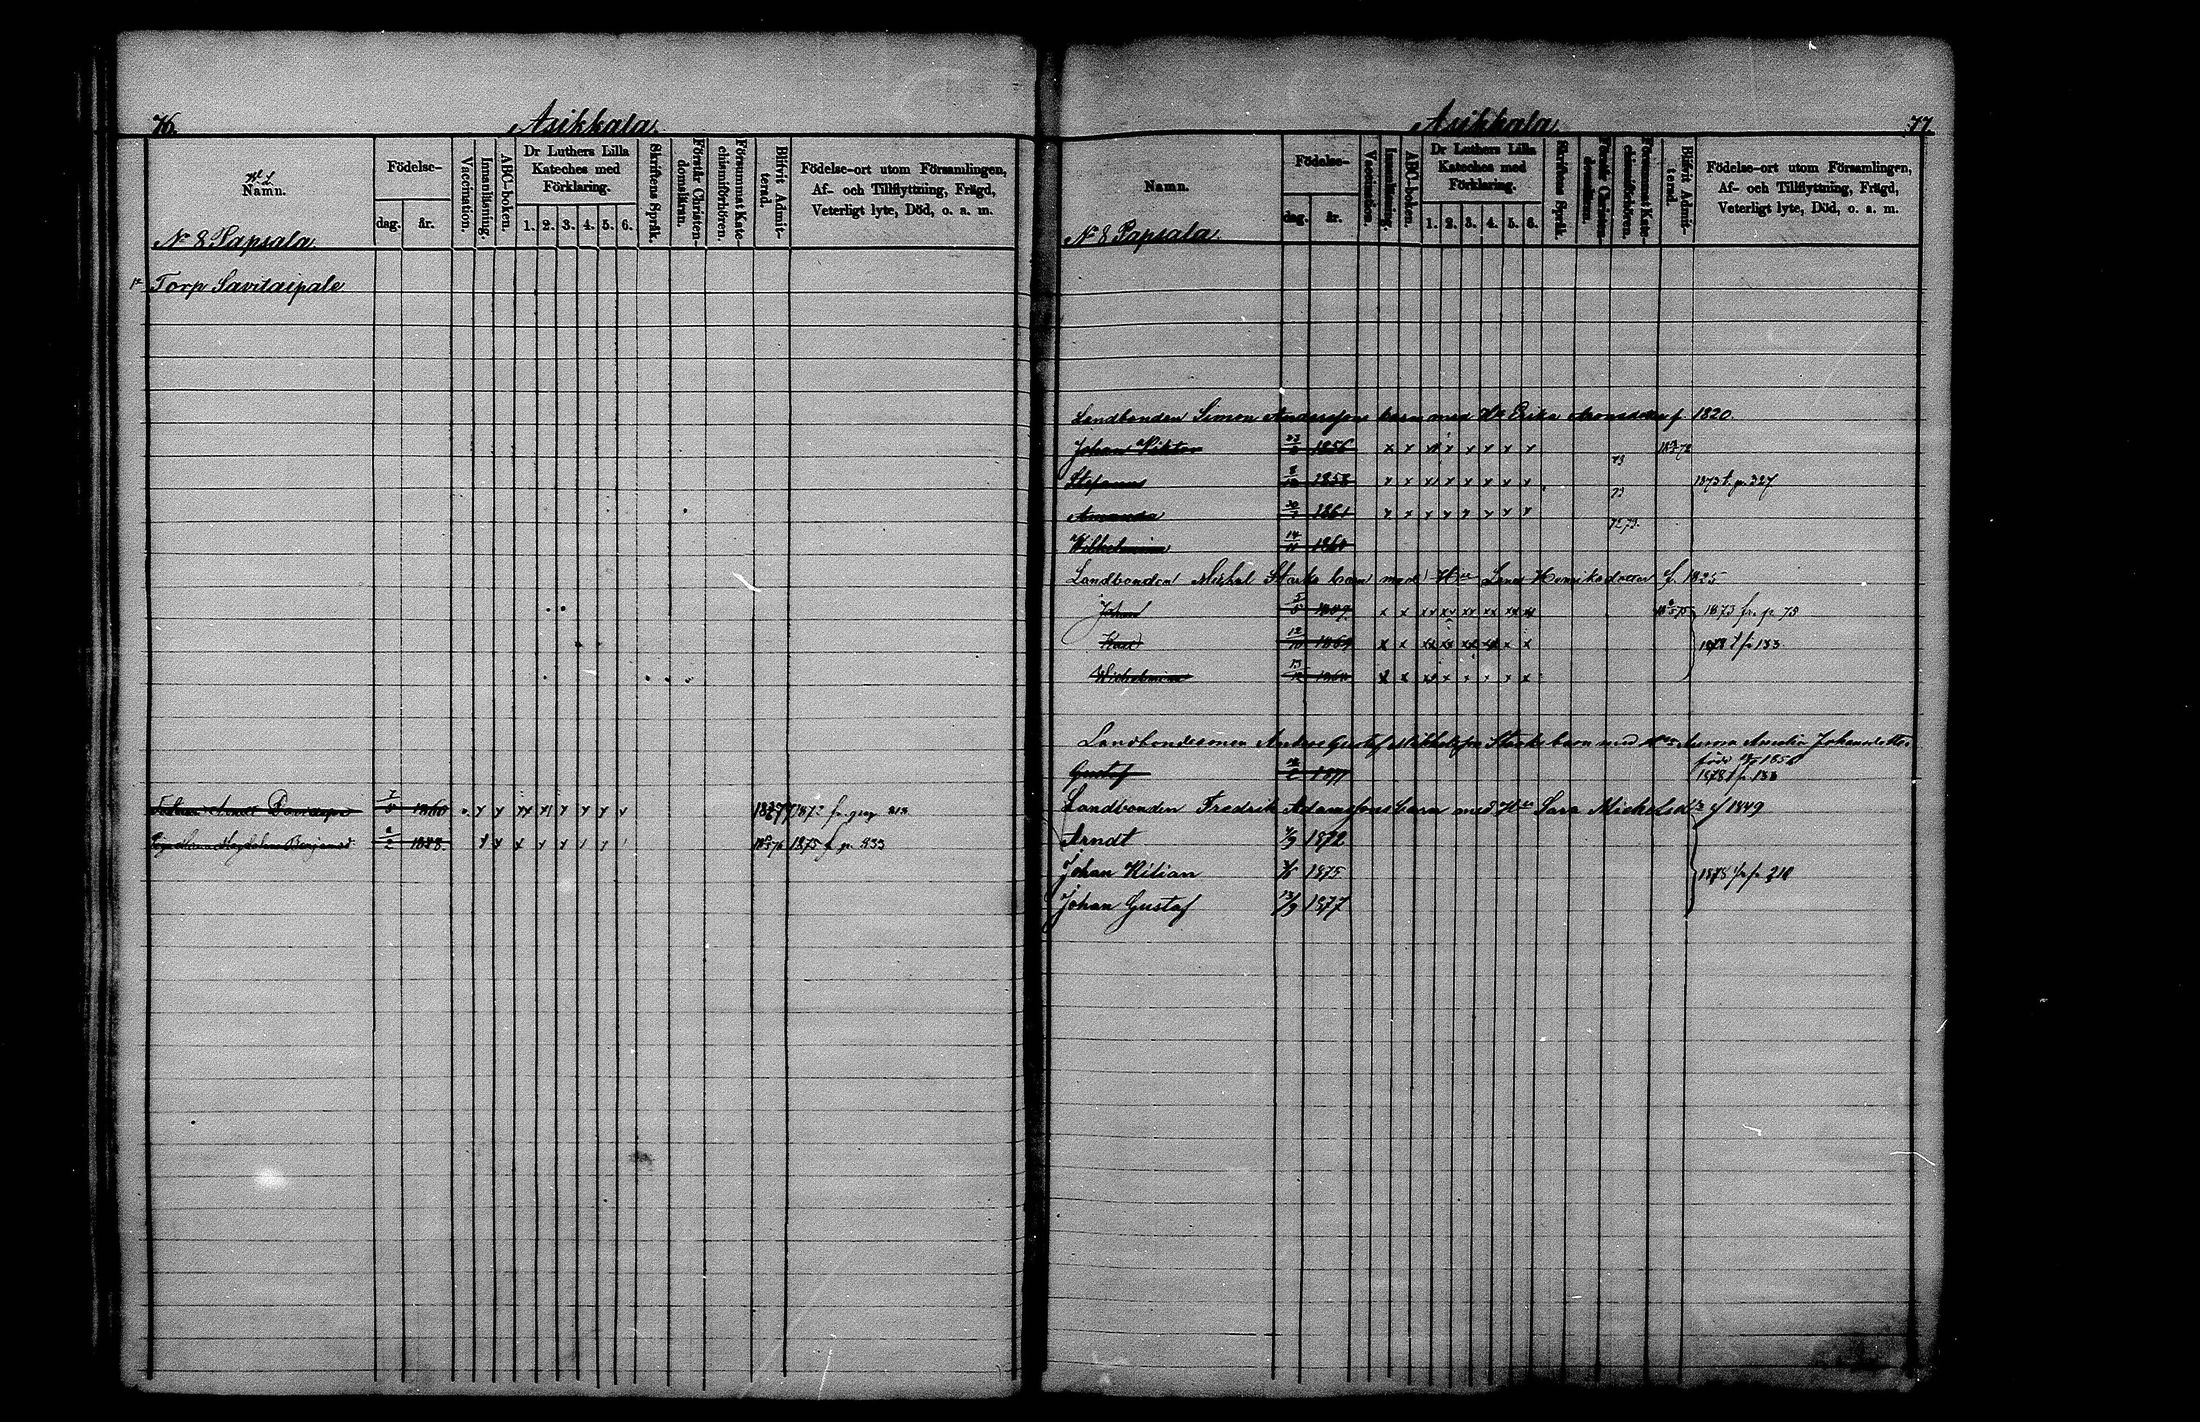 76.
Asikkala.
Namn.
Födelse-
dag.
år.
Vaccination.
Innanläsning.
ABC-boken.
Dr Luthers Lilla
Kateches med
Förklaring.
1. 2. 3. 4. 5. 6.
Skriftens Språk.
Förstår Christen-
domsläran.
Försummat Kate-
chismiförhören.
Blifvit Admit-
terad.
Födelse-ort utom Församlingen,
Af- och Tillflyttning, Frägd,
Veterligt lyte, Död, o. a. m.
No 8 Papsala
Torp Savitaipale
1860
Magdalena
1875 f. p. 533
Asikkala.
77
Namn.
Födelse-
dag.
år.
Vaccination.
Innanläsning.
ABC-boken.
Dr Luthers Lilla
Kateches med
Förklaring.
1. 2. 3. 4. 5. 6.
Skriftens Språk.
Förstår Christen-
domsläran.
Försummat Kate-
chismiförhören.
Blifvit Admit-
terad.
Födelse-ort utom Församlingen,
Af- och Tillflyttning, Frägd,
Veterligt lyte, Död, o. a. m.
No 8 Papsala.
Landbonden Simon Anderssons barn med Erika f. 1820.
Johan Viktor 1856 x x x x x x
Stefanus 1858 x x x x x x x 73 1873 t. p. 327
Amanda 1861 x x x x x x x 73
Wilhelmina 14/11
Landbonden Michel Starks barn med Hu Lena Henriksdotter f. 1825
Johan x x 1873 fr. p. 75
Karl 12/10 x x 1878 t. p. 133
Wilhelmina 13
Landbondesonen Anders Gustaf Mikkelsson Starks barn med Aurora Amalia Johansdotter
född 1850
Gustaf 1877 1878 t. p. 133
Landbonden Fredrik Adamssons barn med Hu Sara Michelsdr f 1849
Arndt 1872
Johan Kilian 1875 1878 fr. p. 210
Johan Gustaf 13/9 1877